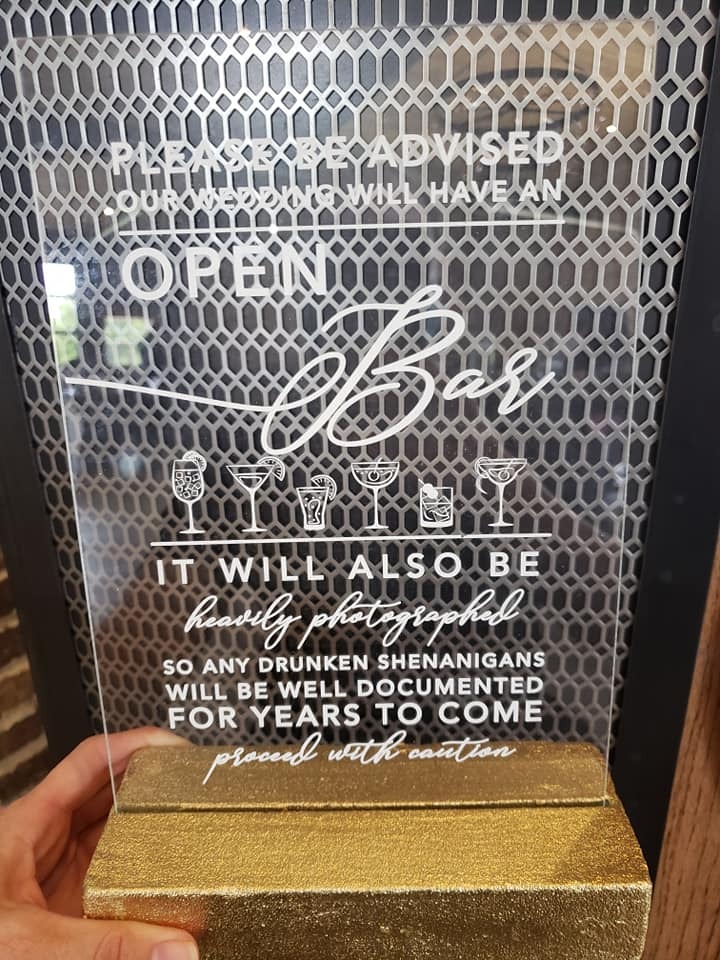 PLEASE BE ADVISED
OUR WEDDING WILL HAVE AN
OPEN
Bar
IT WILL ALSO BE
heavily photographed
SO ANY DRUNKEN SHENANIGANS
WILL BE WELL DOCUMENTED
FOR YEARS TO COME
proceed with caution